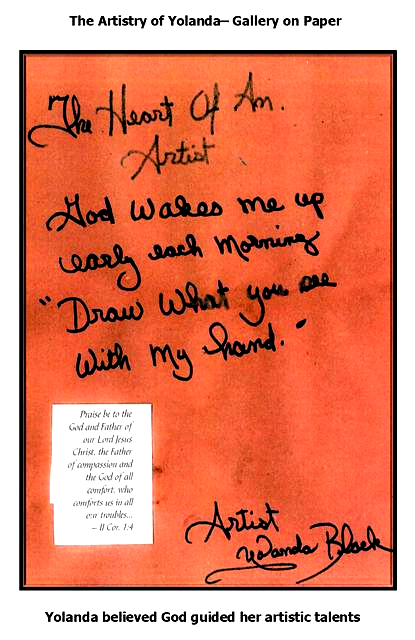 The Artistry of Yolanda– Gallery on Paper
The Heart Of An.
Artist
God Wakes me up
early each Morning
"Draw What you see
With My hand."
Praise be to the
God and Father of
our Lord Jesus
Christ, the Father
of compassion and
the God of all
comfort, who
comforts us in all
our troubles...
– II Cor. 1:4
Artist
Yolanda Black
Yolanda believed God guided her artistic talents